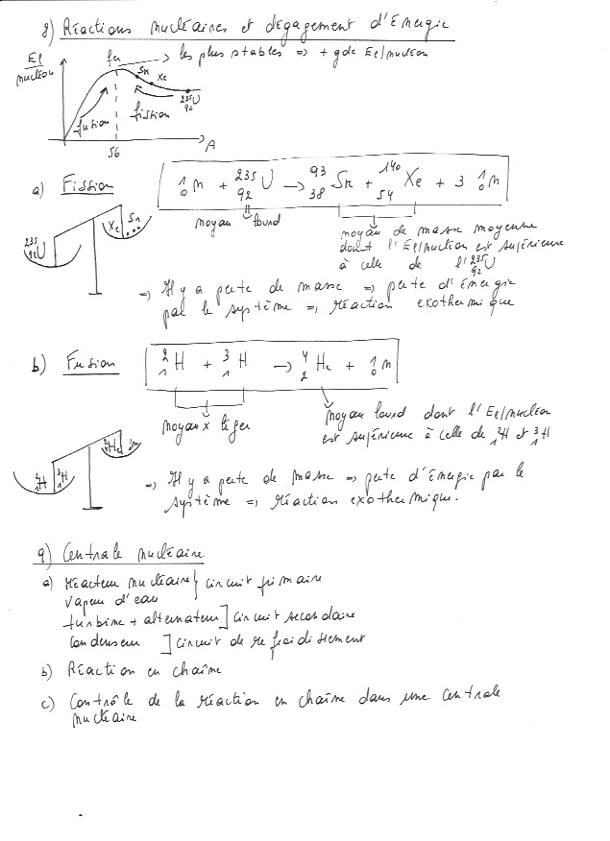 8) Réactions nucléaires et dégagement d'Energie
El/nucléon
fer → les plus stables => + gde El/nucléon
Sr
Xe
²³⁵₉₂U
fusion
fission
56
A
a) Fission
¹₀n + ²³⁵₉₂U → ⁹³₃₈Sr + ¹⁴⁰₅₄Xe + 3 ¹₀n
noyau lourd
noyau de masse moyenne
dont l'El/nucléon est supérieure
à celle de l'²³⁵₉₂U
²³⁵₉₂U
Xe Sr ...
=> Il y a perte de masse => perte d'énergie
par le système => réaction exothermique
b) Fusion
²₁H + ³₁H → ⁴₂He + ¹₀n
noyaux léger
noyau lourd dont l'El/nucléon
est supérieure à celle de ²₁H et ³₁H
²₁H ³₁H
⁴₂He ¹₀n
=> Il y a perte de masse => perte d'énergie par le
système => réaction exothermique.
9) Centrale nucléaire
a) réacteur nucléaire } circuit primaire
vapeur d'eau
turbine + alternateur ] circuit secondaire
condenseur ] circuit de refroidissement
b) Réaction en chaîne
c) Contrôle de la réaction en chaîne dans une centrale
nucléaire